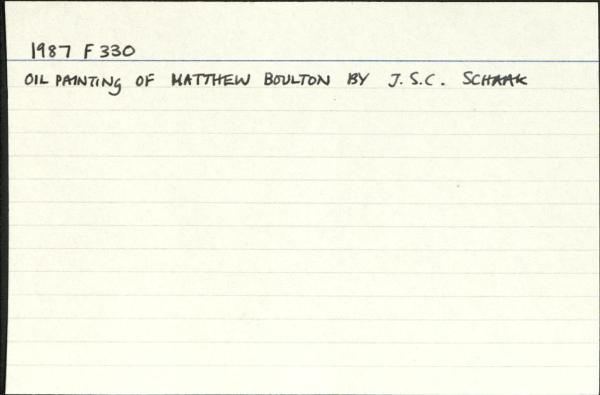 1987 F 330
OIL PAINTING OF MATTHEW BOULTON BY J.S.C. SCHAAK